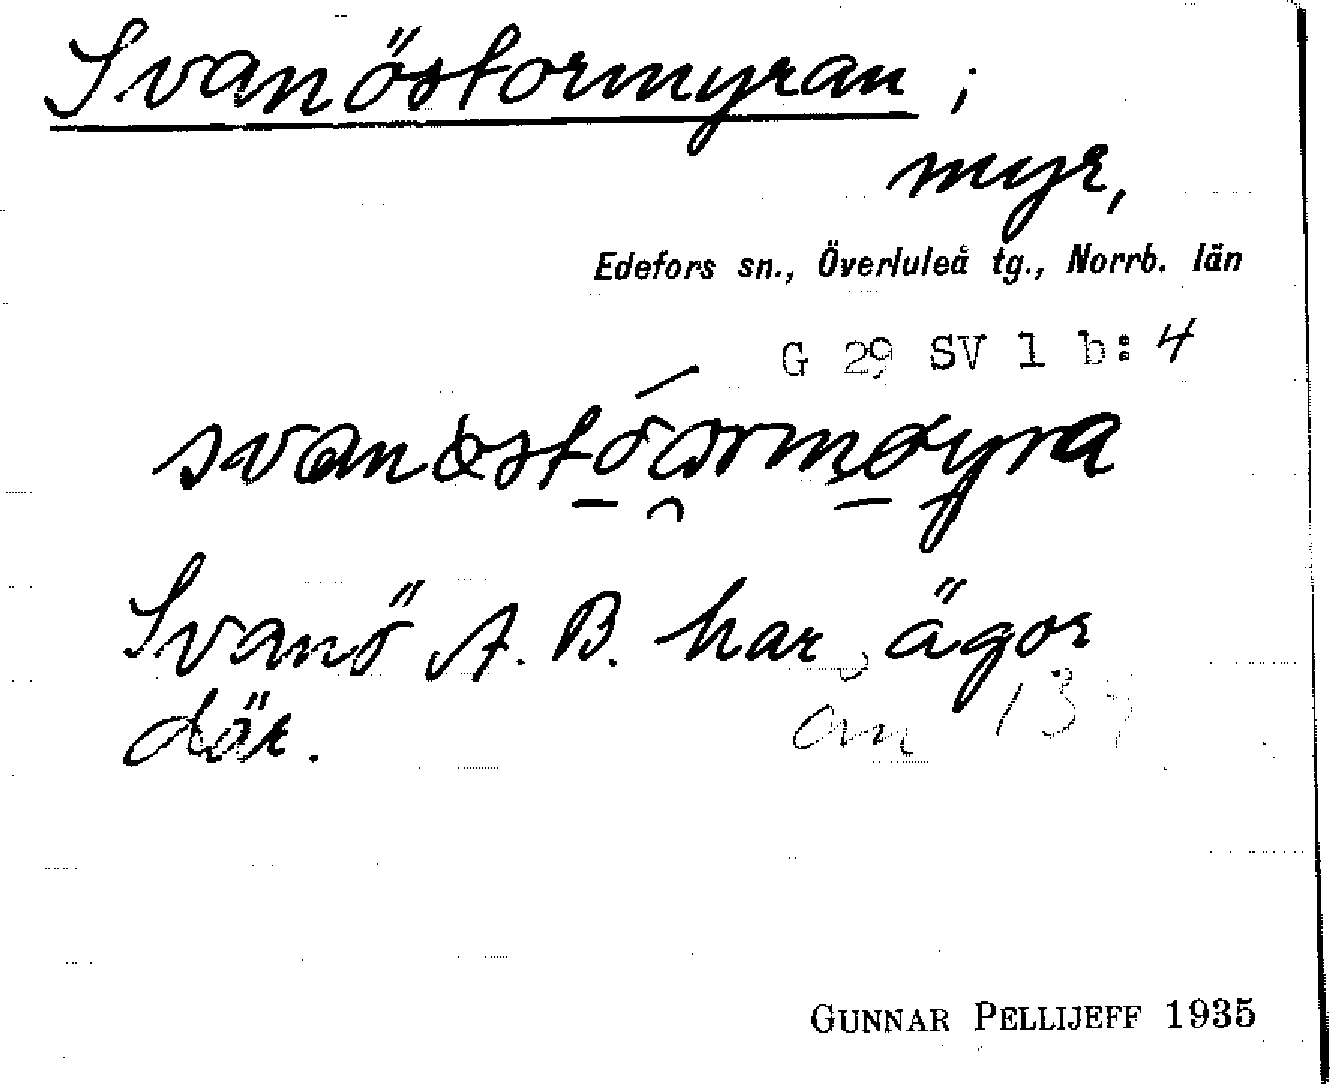 Svanöstormyran;
myr,
Edefors sn., Överluleå tg., Norrb. län
G 29 SV 1 b: 4
Svanö A. B. har ägor
där.
GUNNAR PELLIJEFF 1935